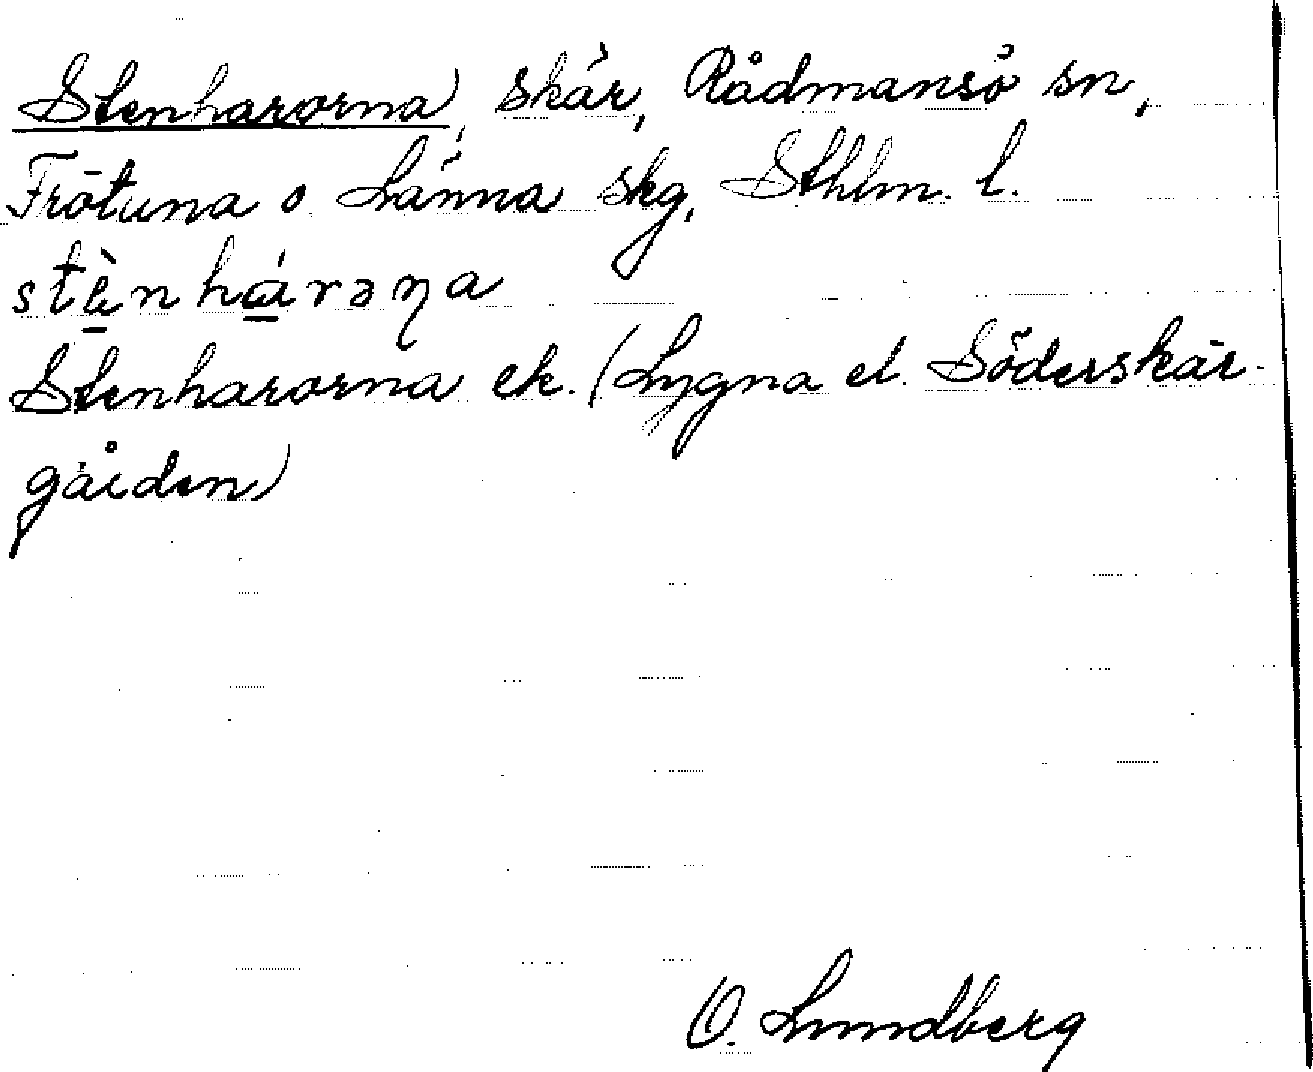 Stenharorna, skär, Rådmansö sn,
Frötuna o Länna skg, Sthlm. l.
stènhárəņa
Stenharorna ek. (Lygna el. Söderskär-
gården)
O. Lundberg